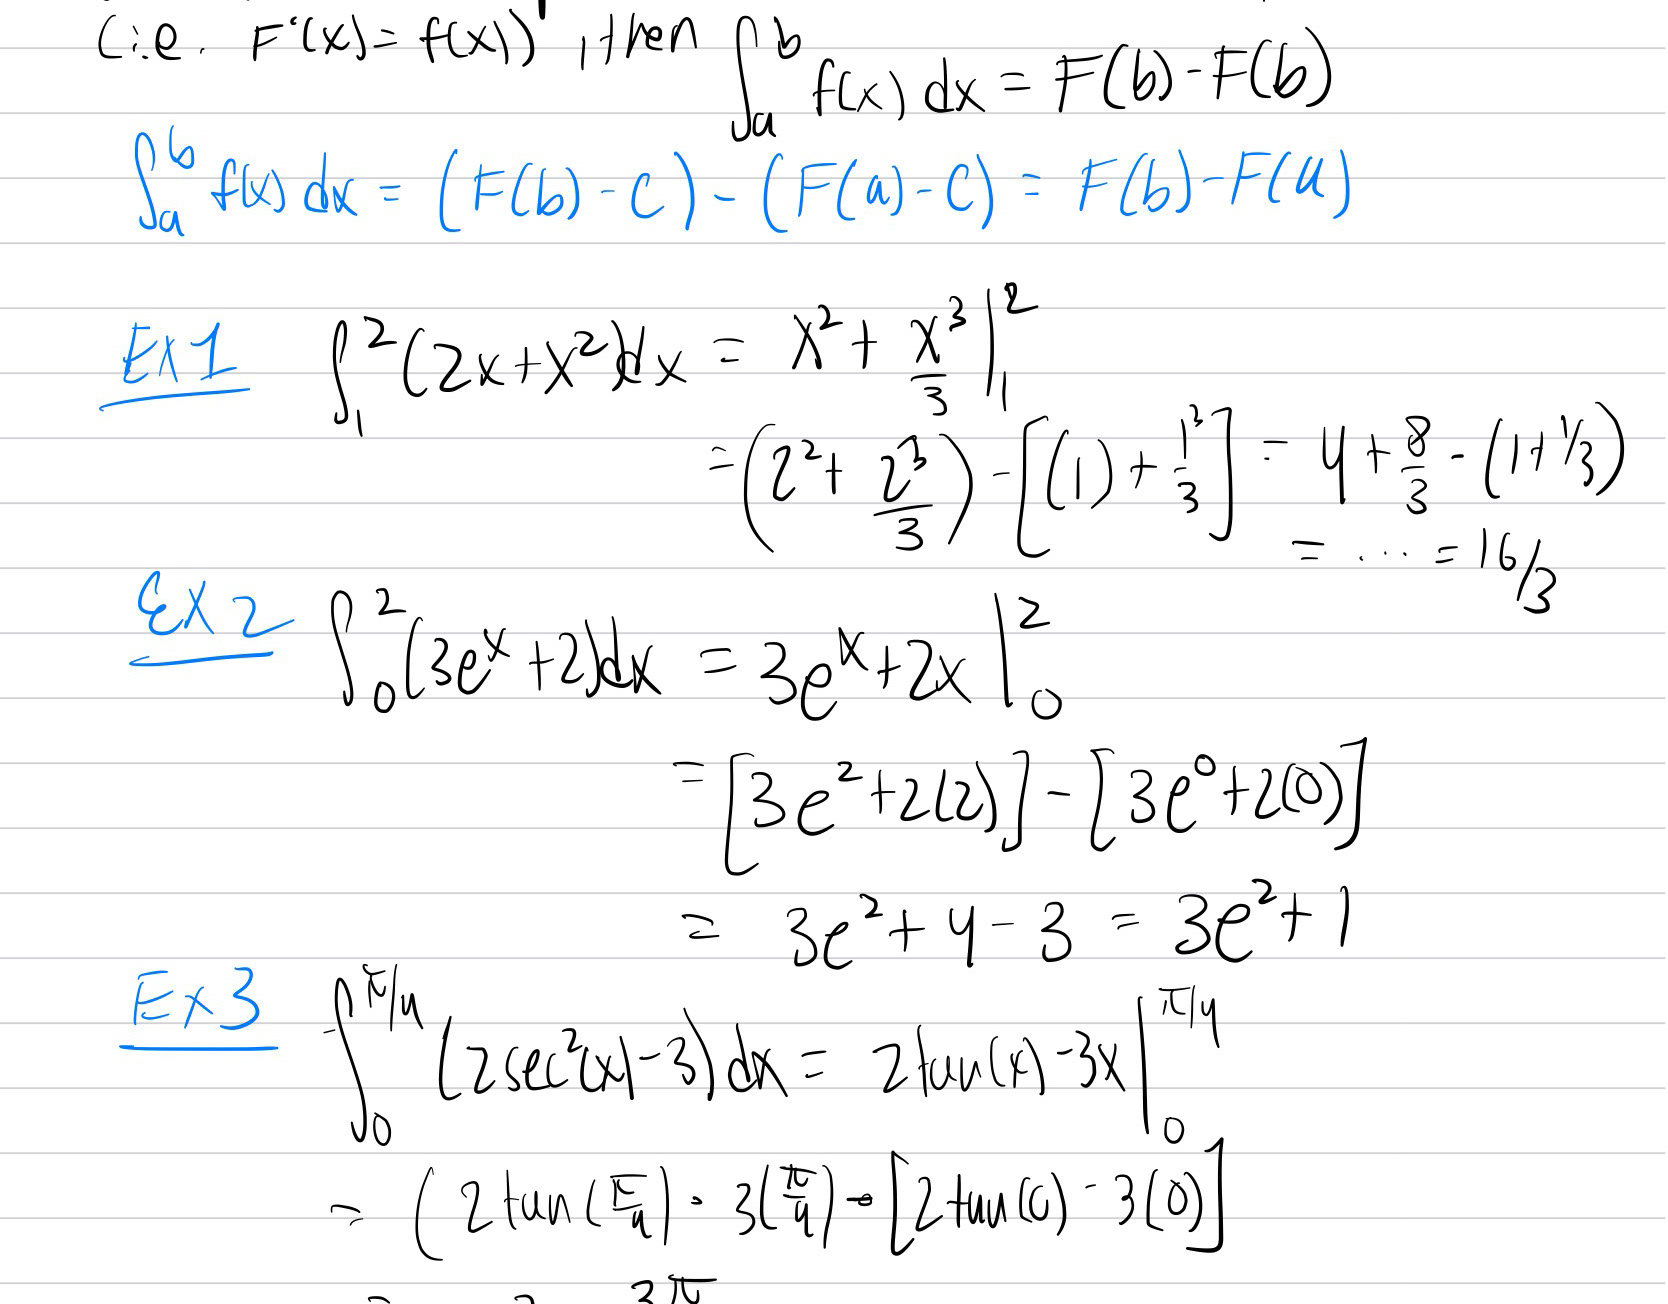 (i.e. F'(x) = f(x)), then ∫_a^b f(x) dx = F(b) - F(b)
∫_a^b f(x) dx = (F(b) - C) - (F(a) - C) = F(b) - F(a)
Ex1 ∫_1^2 (2x + x^2) dx = x^2 + x^3/3 |_1^2
= (2^2 + 2^3/3) - [(1) + 1^3/3] = 4 + 8/3 - (1 + 1/3)
= ... = 16/3
Ex2 ∫_0^2 (3e^x + 2) dx = 3e^x + 2x |_0^2
= [3e^2 + 2(2)] - [3e^0 + 2(0)]
= 3e^2 + 4 - 3 = 3e^2 + 1
Ex3 ∫_0^{π/4} (2sec^2(x) - 3) dx = 2tan(x) - 3x |_0^{π/4}
= (2tan(π/4) - 3(π/4) - [2tan(0) - 3(0)]